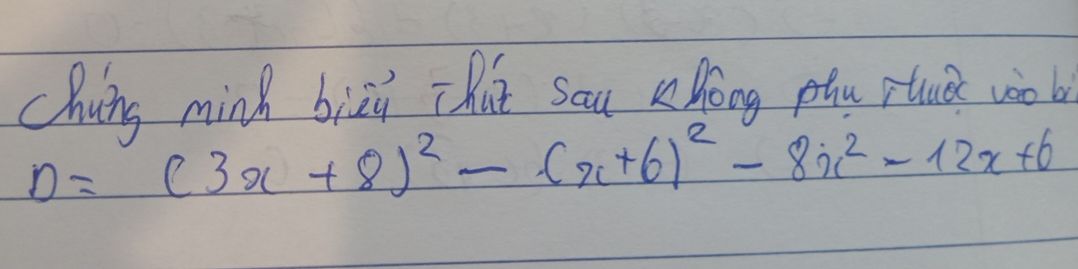 Chứng minh biểu thức sau không phụ thuộc vào bi
D = (3x + 8)² - (x + 6)² - 8x² - 12x + 6